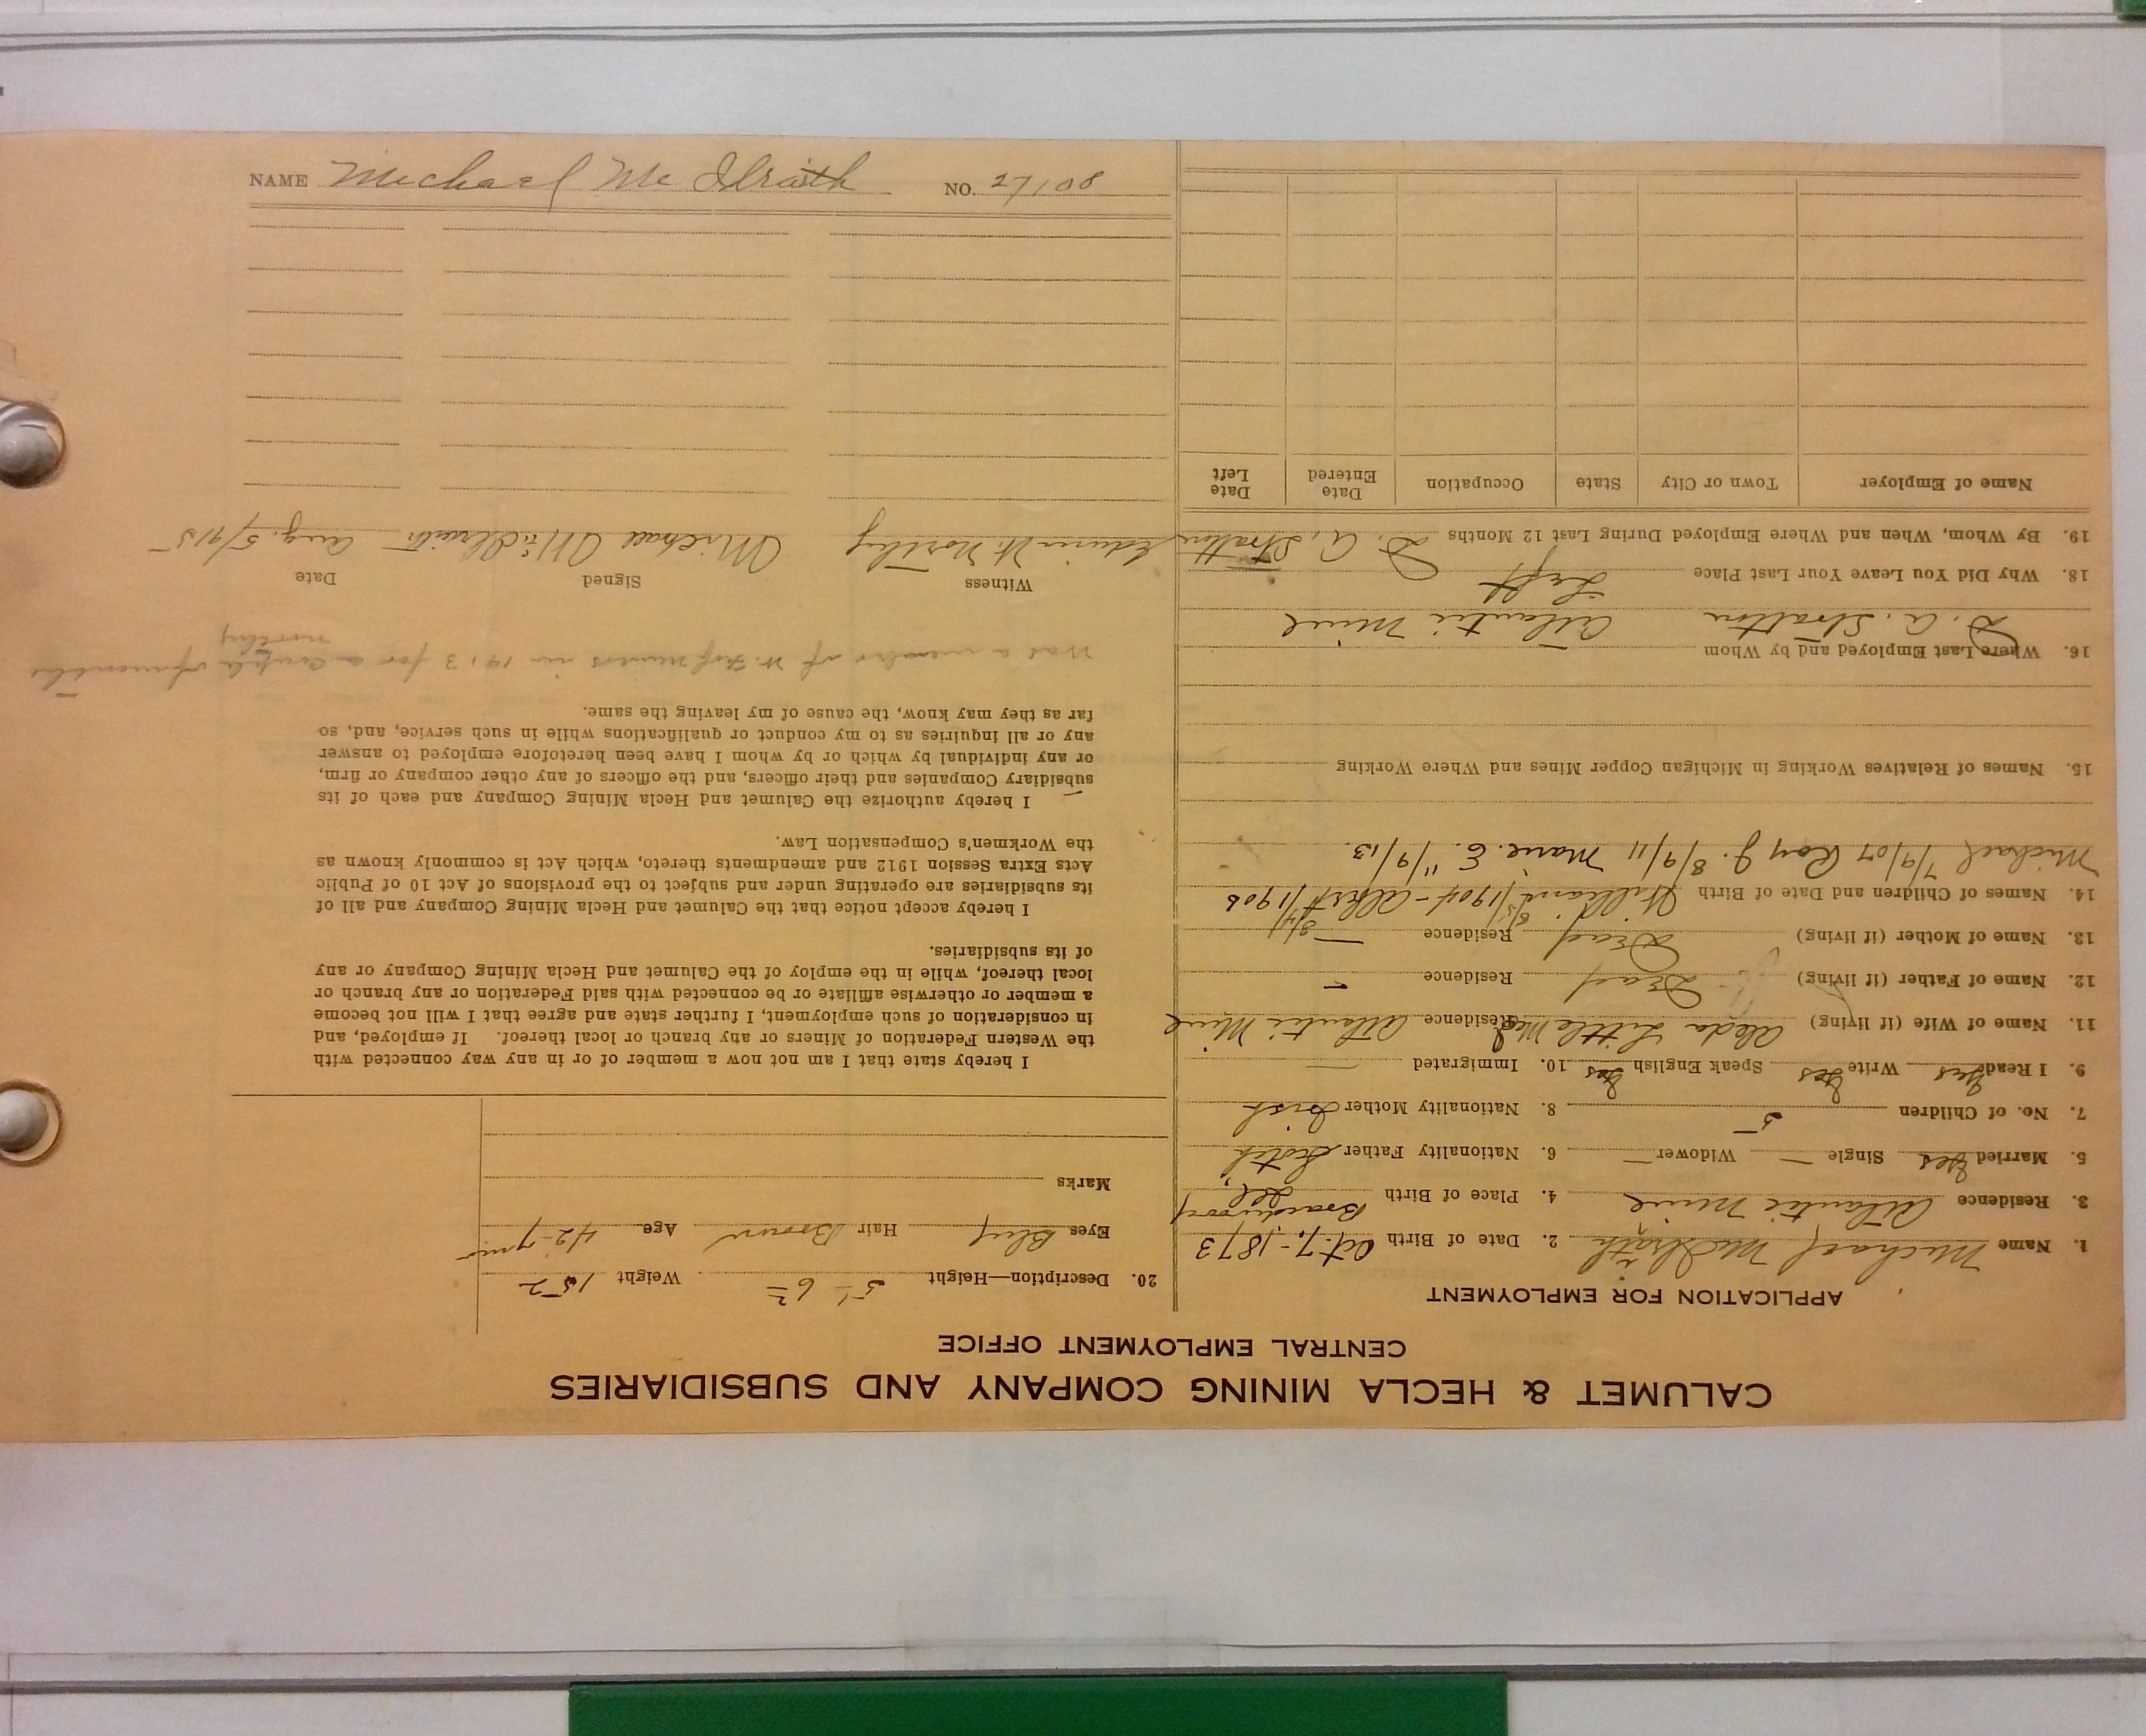 CALUMET & HECLA MINING COMPANY AND SUBSIDIARIES
CENTRAL EMPLOYMENT OFFICE
APPLICATION FOR EMPLOYMENT
1. Name Michael McIlrath 2. Date of Birth Oct. 7, - 1873
3. Residence Atlantic Mine 4. Place of Birth
5. Married Yes Single — Widower — 6. Nationality Father Scotch
7. No. of Children 5 8. Nationality Mother Irish
9. I Read Yes Write Yes Speak English Yes 10. Immigrated —
11. Name of Wife (if living) Residence Atlantic Mine
12. Name of Father (if living) Dead Residence —
13. Name of Mother (if living) Dead Residence —
14. Names of Children and Date of Birth William 8/5/1904 - Albert 3/4/1906
Michael 7/9/07 Roy J. 8/9/11 Marie. E. 11/9/13.
15. Names of Relatives Working in Michigan Copper Mines and Where Working
16. Where Last Employed and by Whom
D. A. Stratton Atlantic Mine
18. Why Did You Leave Your Last Place Left
19. By Whom, When and Where Employed During Last 12 Months D. A. Stratton
Name of Employer Town or City State Occupation Date Entered Date Left
20. Description—Height 5' 6½ Weight 152
Eyes Blue Hair Brown Age 42-9 mos
Marks
I hereby state that I am not now a member of or in any way connected with
the Western Federation of Miners or any branch or local thereof. If employed, and
in consideration of such employment, I further state and agree that I will not become
a member or otherwise affiliate or be connected with said Federation or any branch or
local thereof, while in the employ of the Calumet and Hecla Mining Company or any
of its subsidiaries.
I hereby accept notice that the Calumet and Hecla Mining Company and all of
its subsidiaries are operating under and subject to the provisions of Act 10 of Public
Acts Extra Session 1912 and amendments thereto, which Act is commonly known as
the Workmen's Compensation Law.
I hereby authorize the Calumet and Hecla Mining Company and each of its
subsidiary Companies and their officers, and the officers of any other company or firm,
or any individual by which or by whom I have been heretofore employed to answer
any or all inquiries as to my conduct or qualifications while in such service, and, so
far as they may know, the cause of my leaving the same.
Was a member of W. F. of miners in 1913 for a couple of months
Northey
Witness Signed Date
Edwin W. Northey Michael McIlraith Aug. 5/915
NAME Michael McIlraith NO. 27108